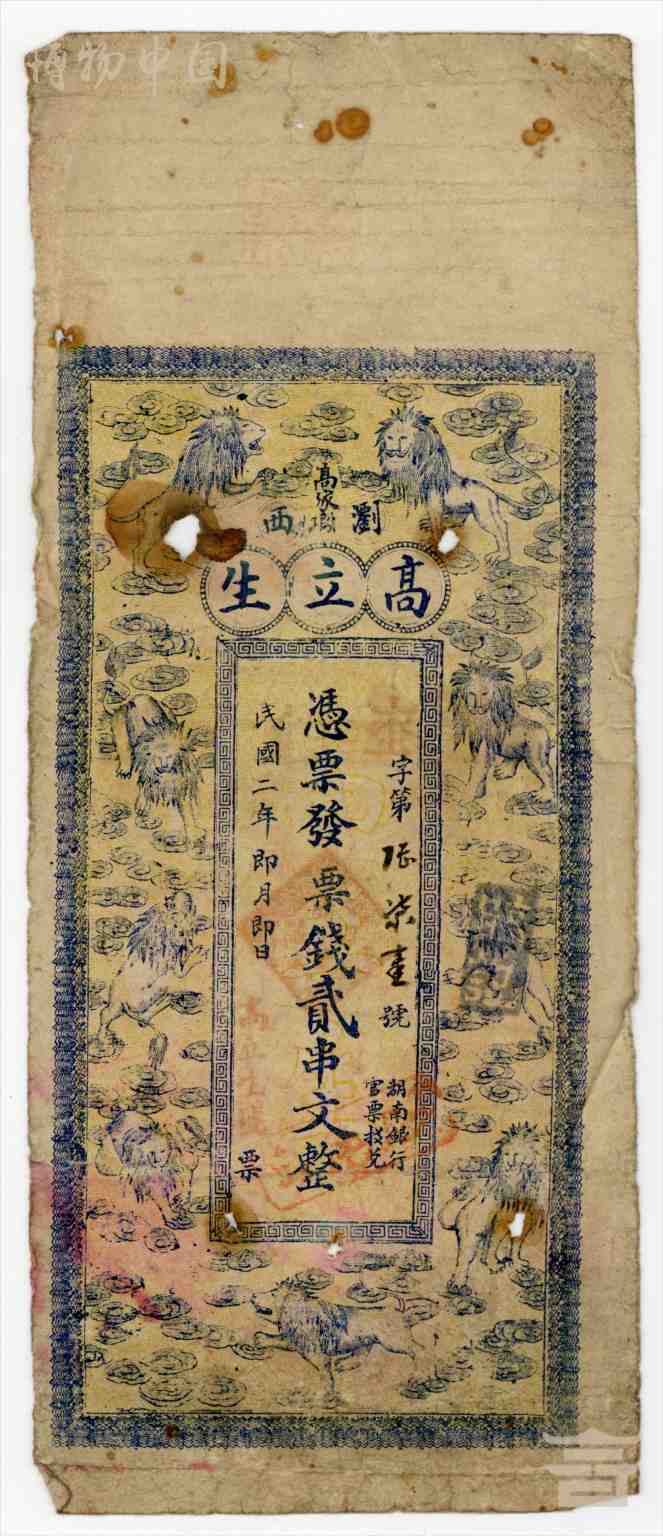 博物中国
瀏西
高家
高立生
字第
柒壹號
湖南銀行
官票找兑
憑票發票錢貳串文整
民國二年即月即日
票